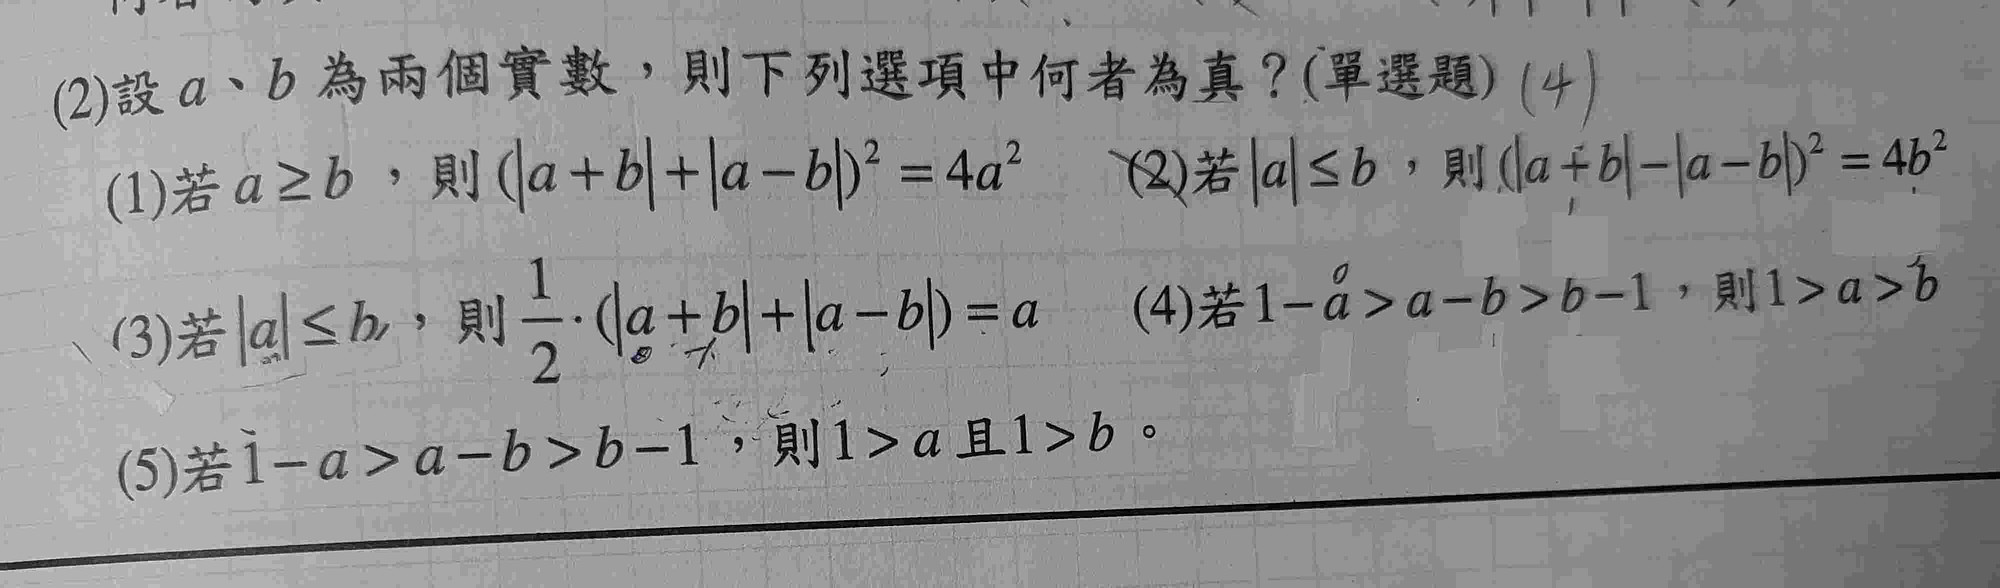 (2)設 a、b 為兩個實數，則下列選項中何者為真？(單選題) (4)
(1)若 a ≥ b ，則 (|a + b| + |a − b|)² = 4a² (2)若 |a| ≤ b ，則 (|a + b| − |a − b|)² = 4b²
(3)若 |a| ≤ b ，則 1/2 · (|a + b| + |a − b|) = a (4)若 1 − a > a − b > b − 1 ，則 1 > a > b
(5)若 1 − a > a − b > b − 1 ，則 1 > a 且 1 > b 。